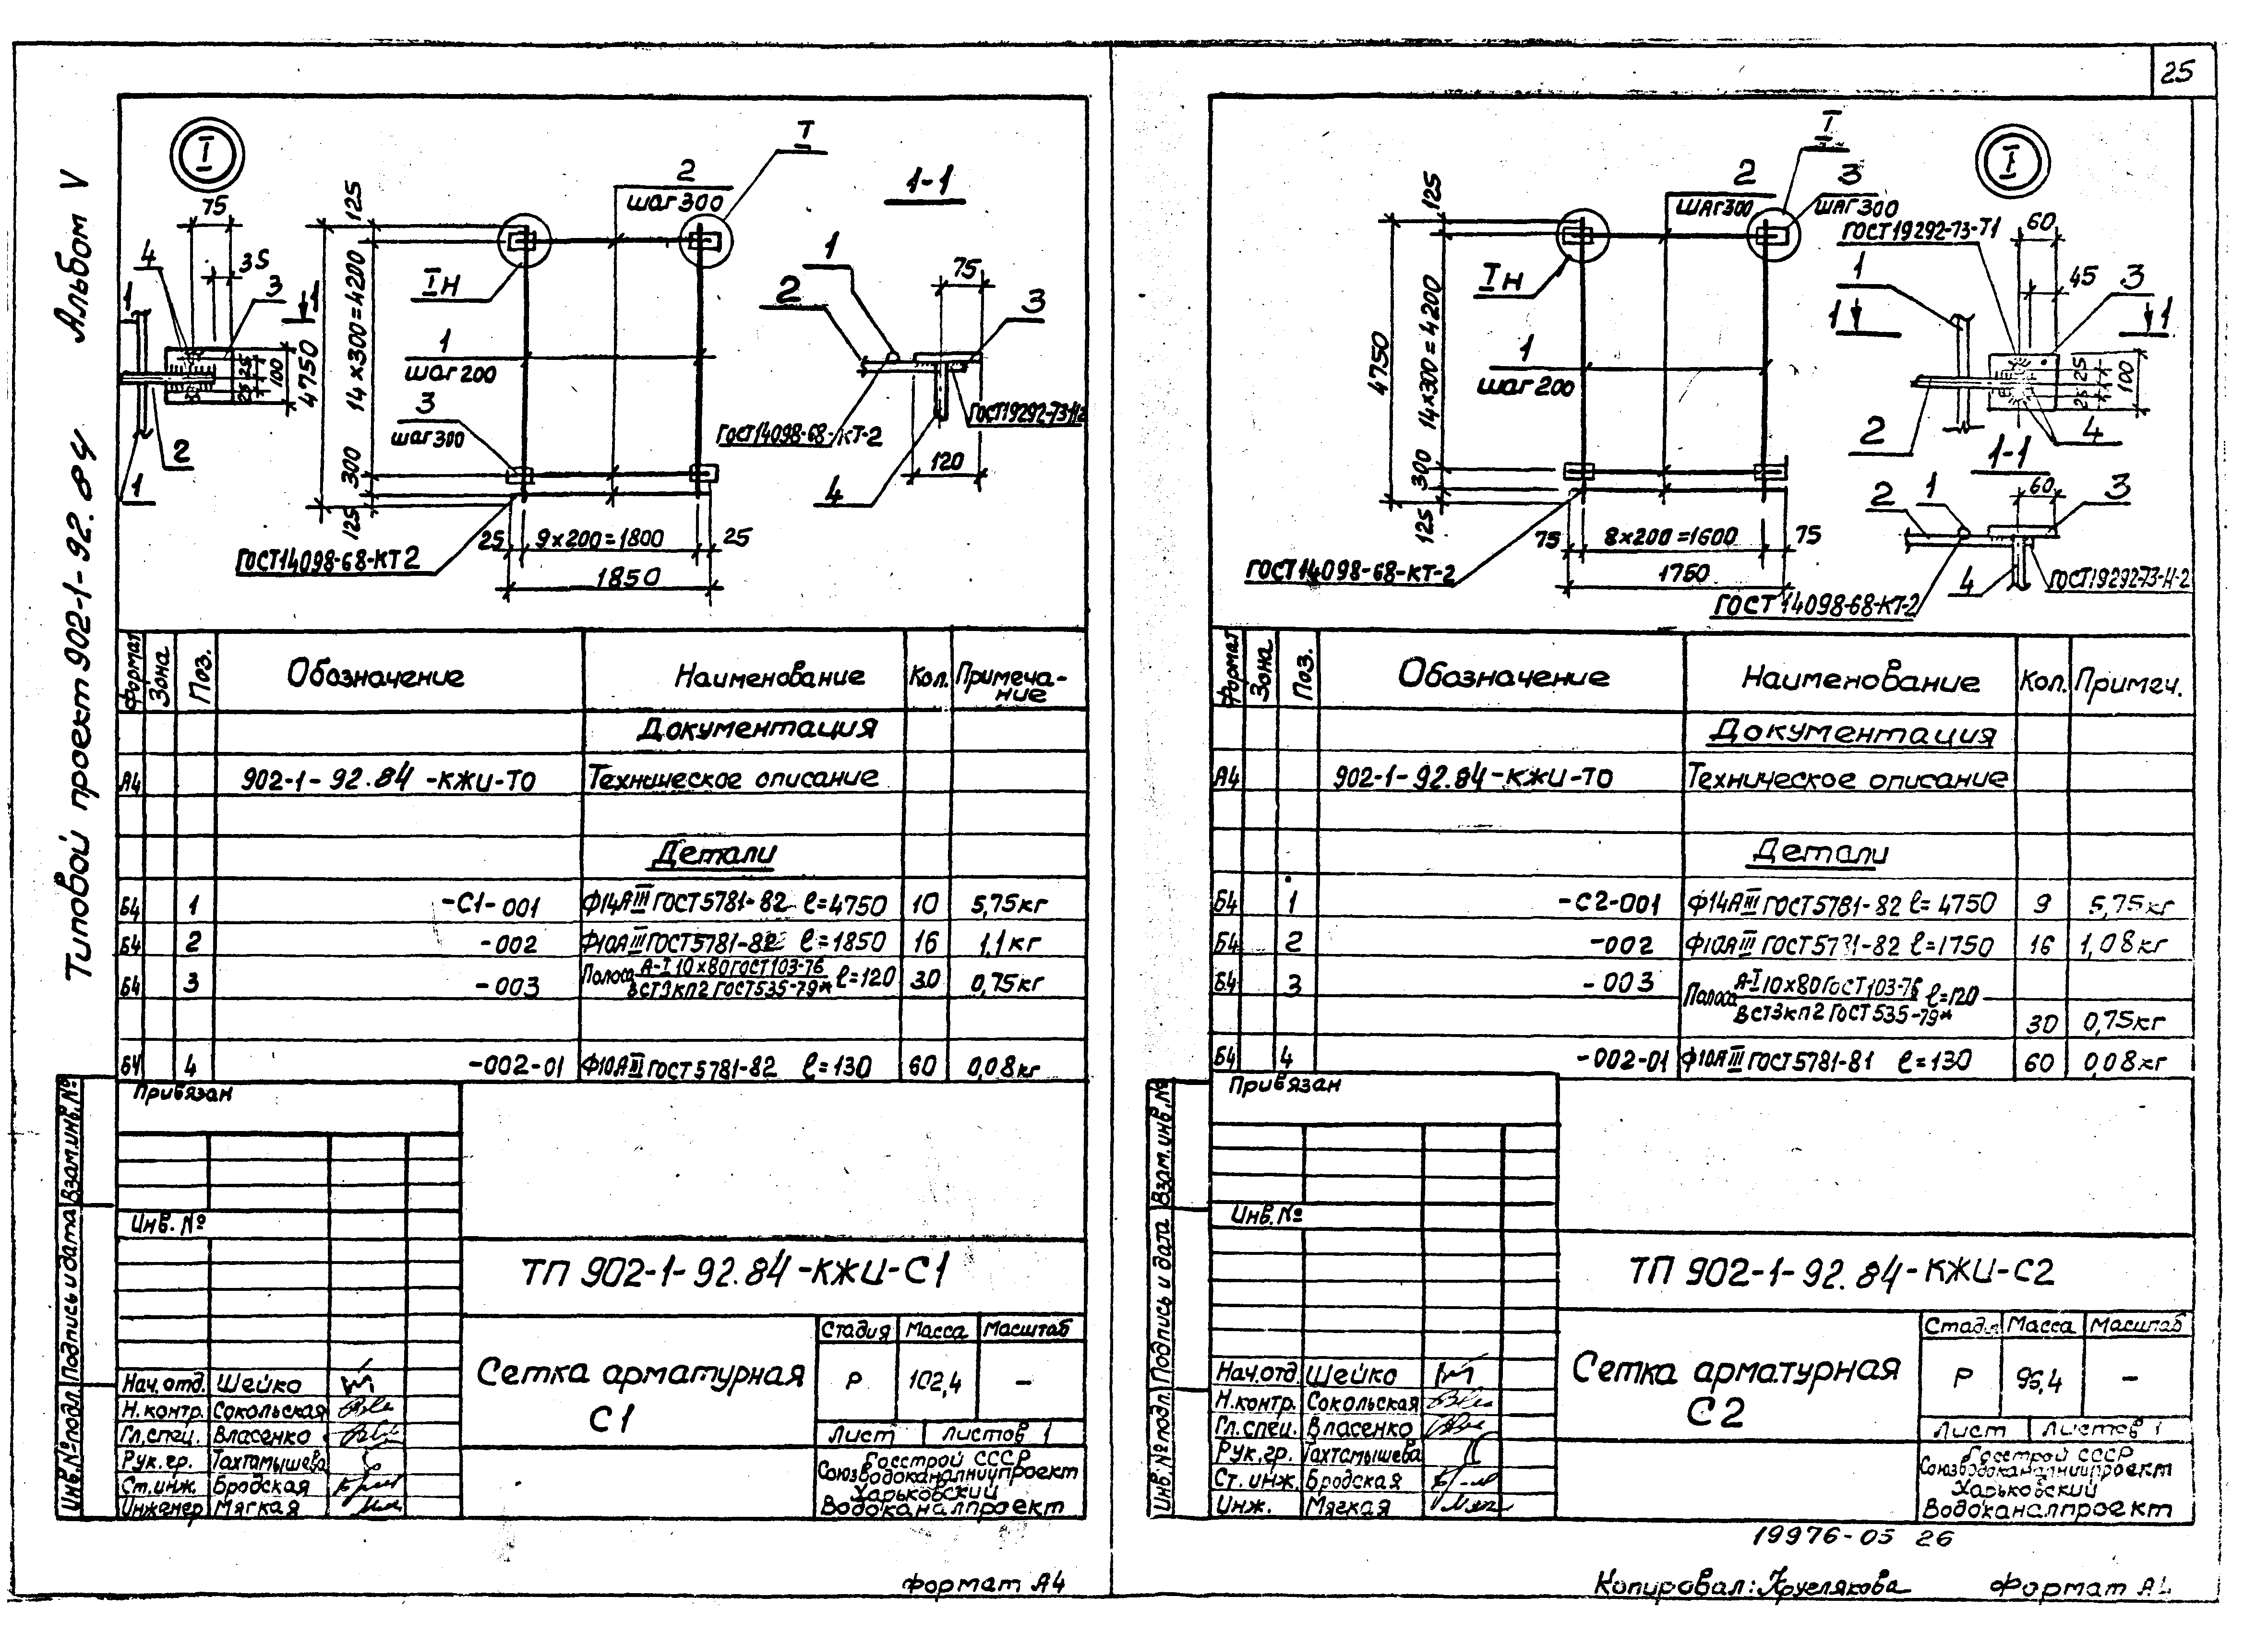 25
Альбом V
Типовой проект 902-1-92.84
I
75
4
35
3
1
1
25
25
100
2
1
I
2
шаг 300
125
14×300=4200
4750
300
125
Iн
1
шаг 200
3
шаг 300
25
9×200=1800
25
1850
ГОСТ14098-68-КТ2
1-1
1
2
75
3
ГОСТ19292-73-Н2
ГОСТ14098-68-КТ-2
120
4
Формат
Зона
Поз.
Обозначение
Наименование
Кол.
Примеча-
ние
Документация
А4 902-1-92.84-КЖИ-ТО Техническое описание
Детали
Б4 1 -С1-001 Ф14АIII ГОСТ5781-82 ℓ=4750 10 5,75кг
Б4 2 -002 Ф10АIII ГОСТ5781-82 ℓ=1850 16 1,1кг
Б4 3 -003 Полоса А-I 10×80 ГОСТ103-76 ℓ=120 30 0,75кг
ВСТ3кп2 ГОСТ535-79*
Б4 4 -002-01 Ф10АIII ГОСТ5781-82 ℓ=130 60 0,08кг
Привязан
Инв. №
Взам.инв.№
Подпись и дата
Инв.№подл.
ТП 902-1-92.84-КЖИ-С1
Сетка арматурная
С1
Стадия Масса Масштаб
Р 102,4 –
Лист Листов 1
Нач.отд. Шейко
Н.контр. Сокольская
Гл.спец. Власенко
Рук.гр. Тахтамышева
Ст.инж. Бродская
Инженер Мягкая
Госстрой СССР
Союзводоканалниипроект
Харьковский
Водоканалпроект
Формат А4
I
2
шаг 300
3
шаг 300
125
14×300=4200
4750
300
125
Iн
1
шаг 200
75
8×200=1600
75
1750
ГОСТ14098-68-КТ-2
I
ГОСТ19292-73-Т1
60
1
45
3
1
1
25
25
100
2
4
1-1
60
2
1
3
4
ГОСТ19292-73-Н-2
ГОСТ 14098-68-КТ-2
Формат
Зона
Поз.
Обозначение
Наименование
Кол.
Примеч.
Документация
А4 902-1-92.84-КЖИ-ТО Техническое описание
Детали
Б4 1 -С2-001 Ф14АIII ГОСТ5781-82 ℓ=4750 9 5,75кг
Б4 2 -002 Ф10АIII ГОСТ5781-82 ℓ=1750 16 1,08кг
Б4 3 -003 Полоса А-I 10×80 ГОСТ103-76 ℓ=120
ВСТ3кп2 ГОСТ535-79*
30 0,75кг
Б4 4 -002-01 Ф10АIII ГОСТ5781-81 ℓ=130 60 0,08кг
Привязан
Инв.№
Взам.инв.№
Подпись и дата
Инв.№подл.
ТП 902-1-92.84-КЖИ-С2
Сетка арматурная
С2
Масса Масштаб
Р 96,4 –
Лист Листов 1
Нач.отд. Шейко
Н.контр. Сокольская
Гл.спец. Власенко
Рук.гр. Тахтамышева
Ст.инж. Бродская
Инж. Мягкая
Госстрой СССР
Союзводоканалниипроект
Харьковский
Водоканалпроект
19976-05 26
Копировал: Круглякова
Формат А4